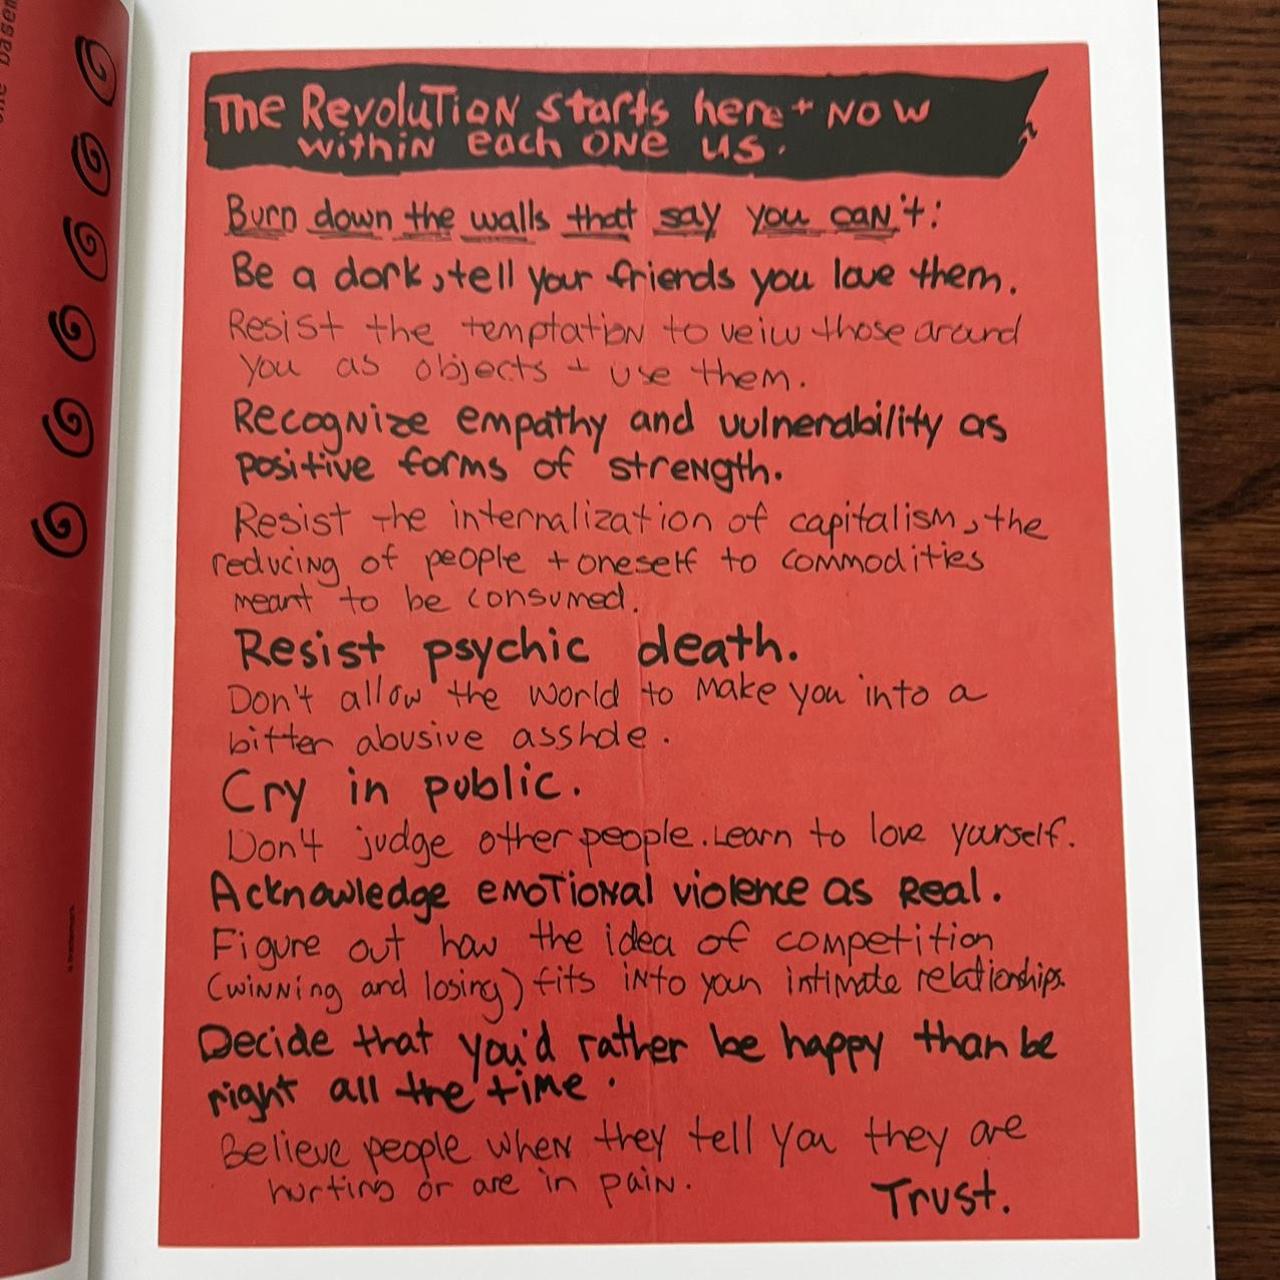 The Revolution starts here + NOW
within each one us.
Burn down the walls that say you can't:
Be a dork, tell your friends you love them.
Resist the temptation to veiw those around
you as objects + use them.
Recognize empathy and vulnerability as
positive forms of strength.
Resist the internalization of capitalism, the
reducing of people + oneself to commodities
meant to be consumed.
Resist psychic death.
Don't allow the world to make you into a
bitter abusive asshole.
Cry in public.
Don't judge other people. Learn to love yourself.
Acknowledge emotional violence as Real.
Figure out how the idea of competition
(winning and losing) fits into your intimate relationships.
Decide that you'd rather be happy than be
right all the time.
Believe people when they tell you they are
hurting or are in pain.
Trust.